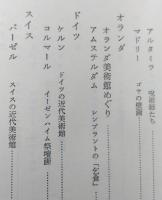 アルタミラ　呪術師たち
マドリー　ゴヤの壁画
オランダ
オランダ美術館めぐり
アムステルダム　レンブラントの「夕空」
ドイツ
ケルン　ドイツの近代美術館
コルマール　イーゼンハイム祭壇画
スイス
バーゼル　スイスの近代美術館